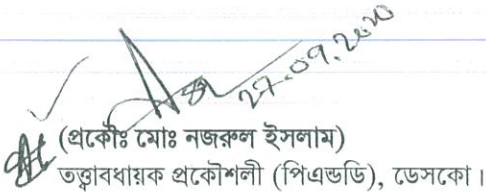 27.09.2020
(প্রকৌঃ মোঃ নজরুল ইসলাম)
তত্ত্বাবধায়ক প্রকৌশলী (পিএন্ডডি), ডেসকো।